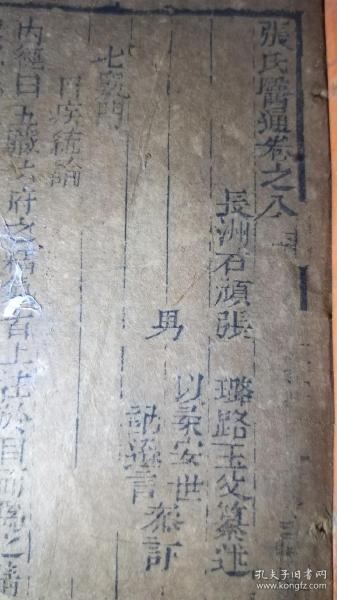 張氏醫通卷之八
長洲石頑張 璐路玉父纂述
男 以柔安世
訒逊言 叅訂
七竅門
目疾統論
內經曰五臟六府之精氣皆上注於目而為之睛
孔夫子旧书网